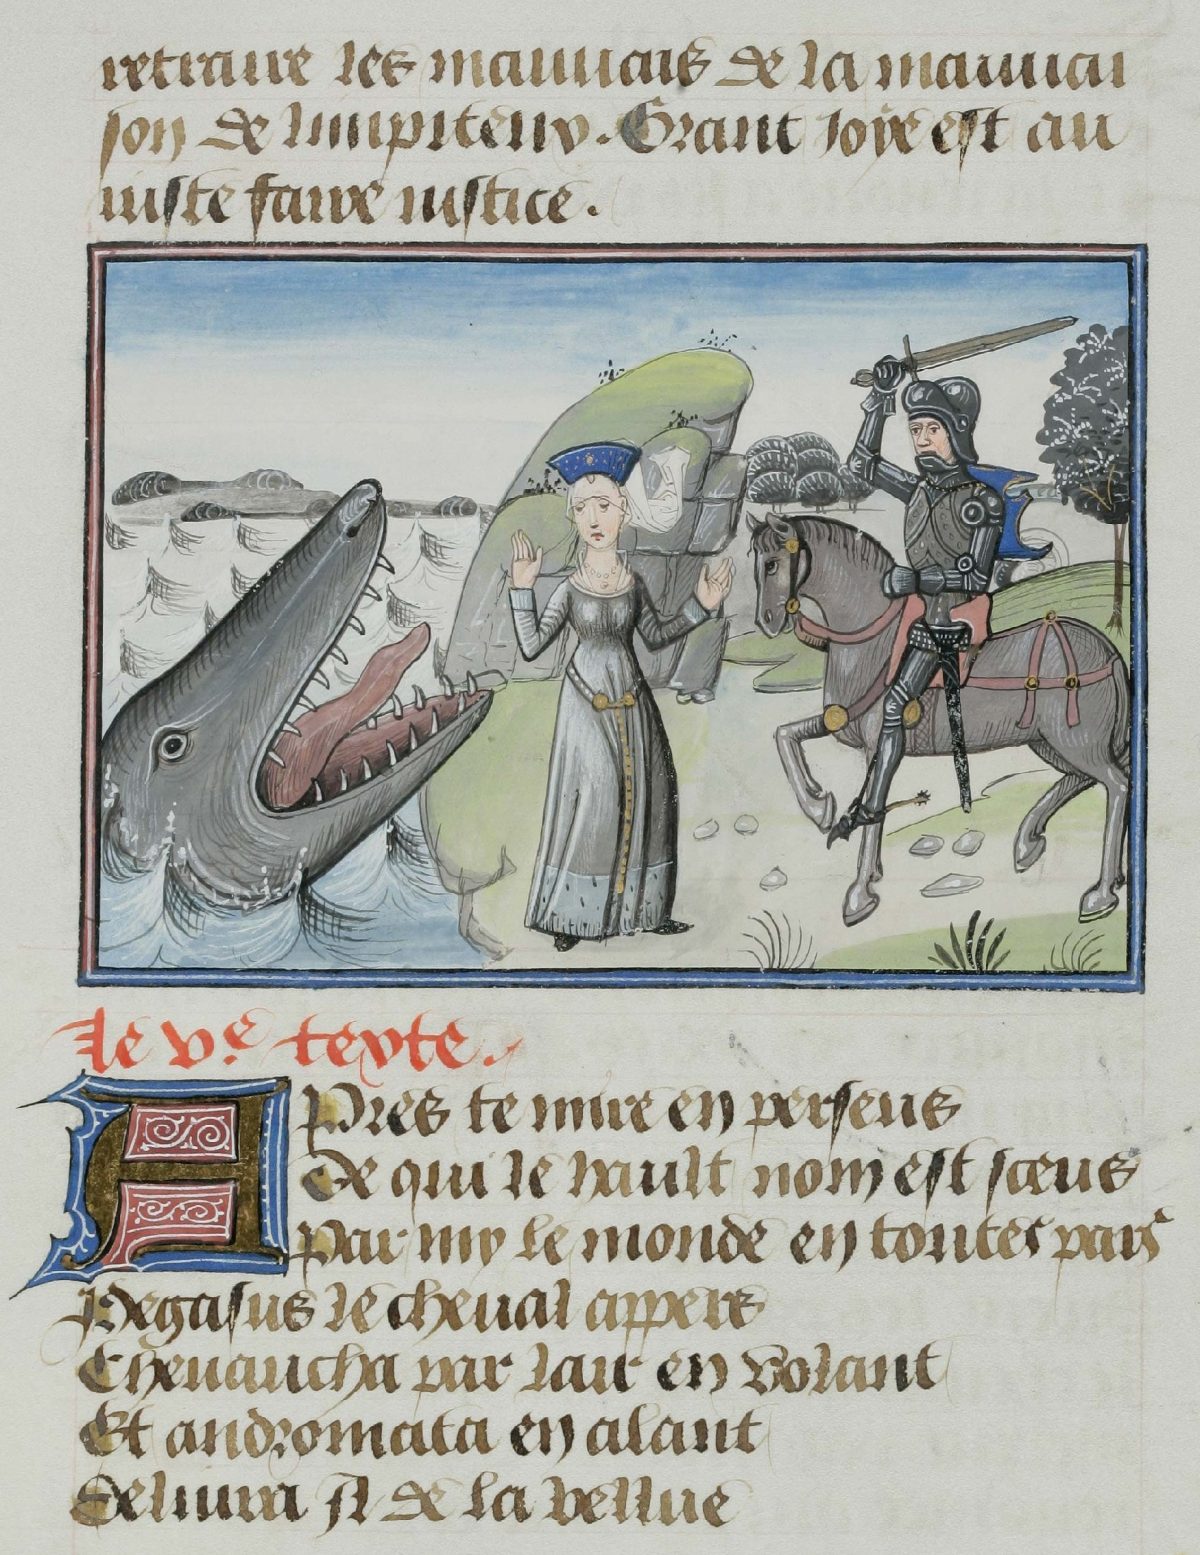 retraire les mauuais de la mauuai
son de limpiteux. Grant Joye est au
iuste faire iustice.
Le v.e texte.
Apres te mire en perseus
De qui le hault nom est sceus
Par my le monde en toutes pars
Pegasus le cheual appers
Cheuaucha par lair en volant
Et andromata en alant
Deliura Jl de la bellue